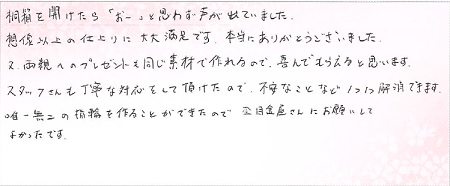 桐箱を開けたら「おー」と思わず声が出ていました。
想像以上の仕上りに大大満足です。本当にありがとうございました。
又、両親へのプレゼントも同じ素材で作れるので、喜んでもらえると思います。
スタッフさんも丁寧な対応をして頂けたので、不安なことなど1つ1つ解消できます。
唯一無二の指輪を作ることができたので 杢目金屋さんにお願いして
よかったです。